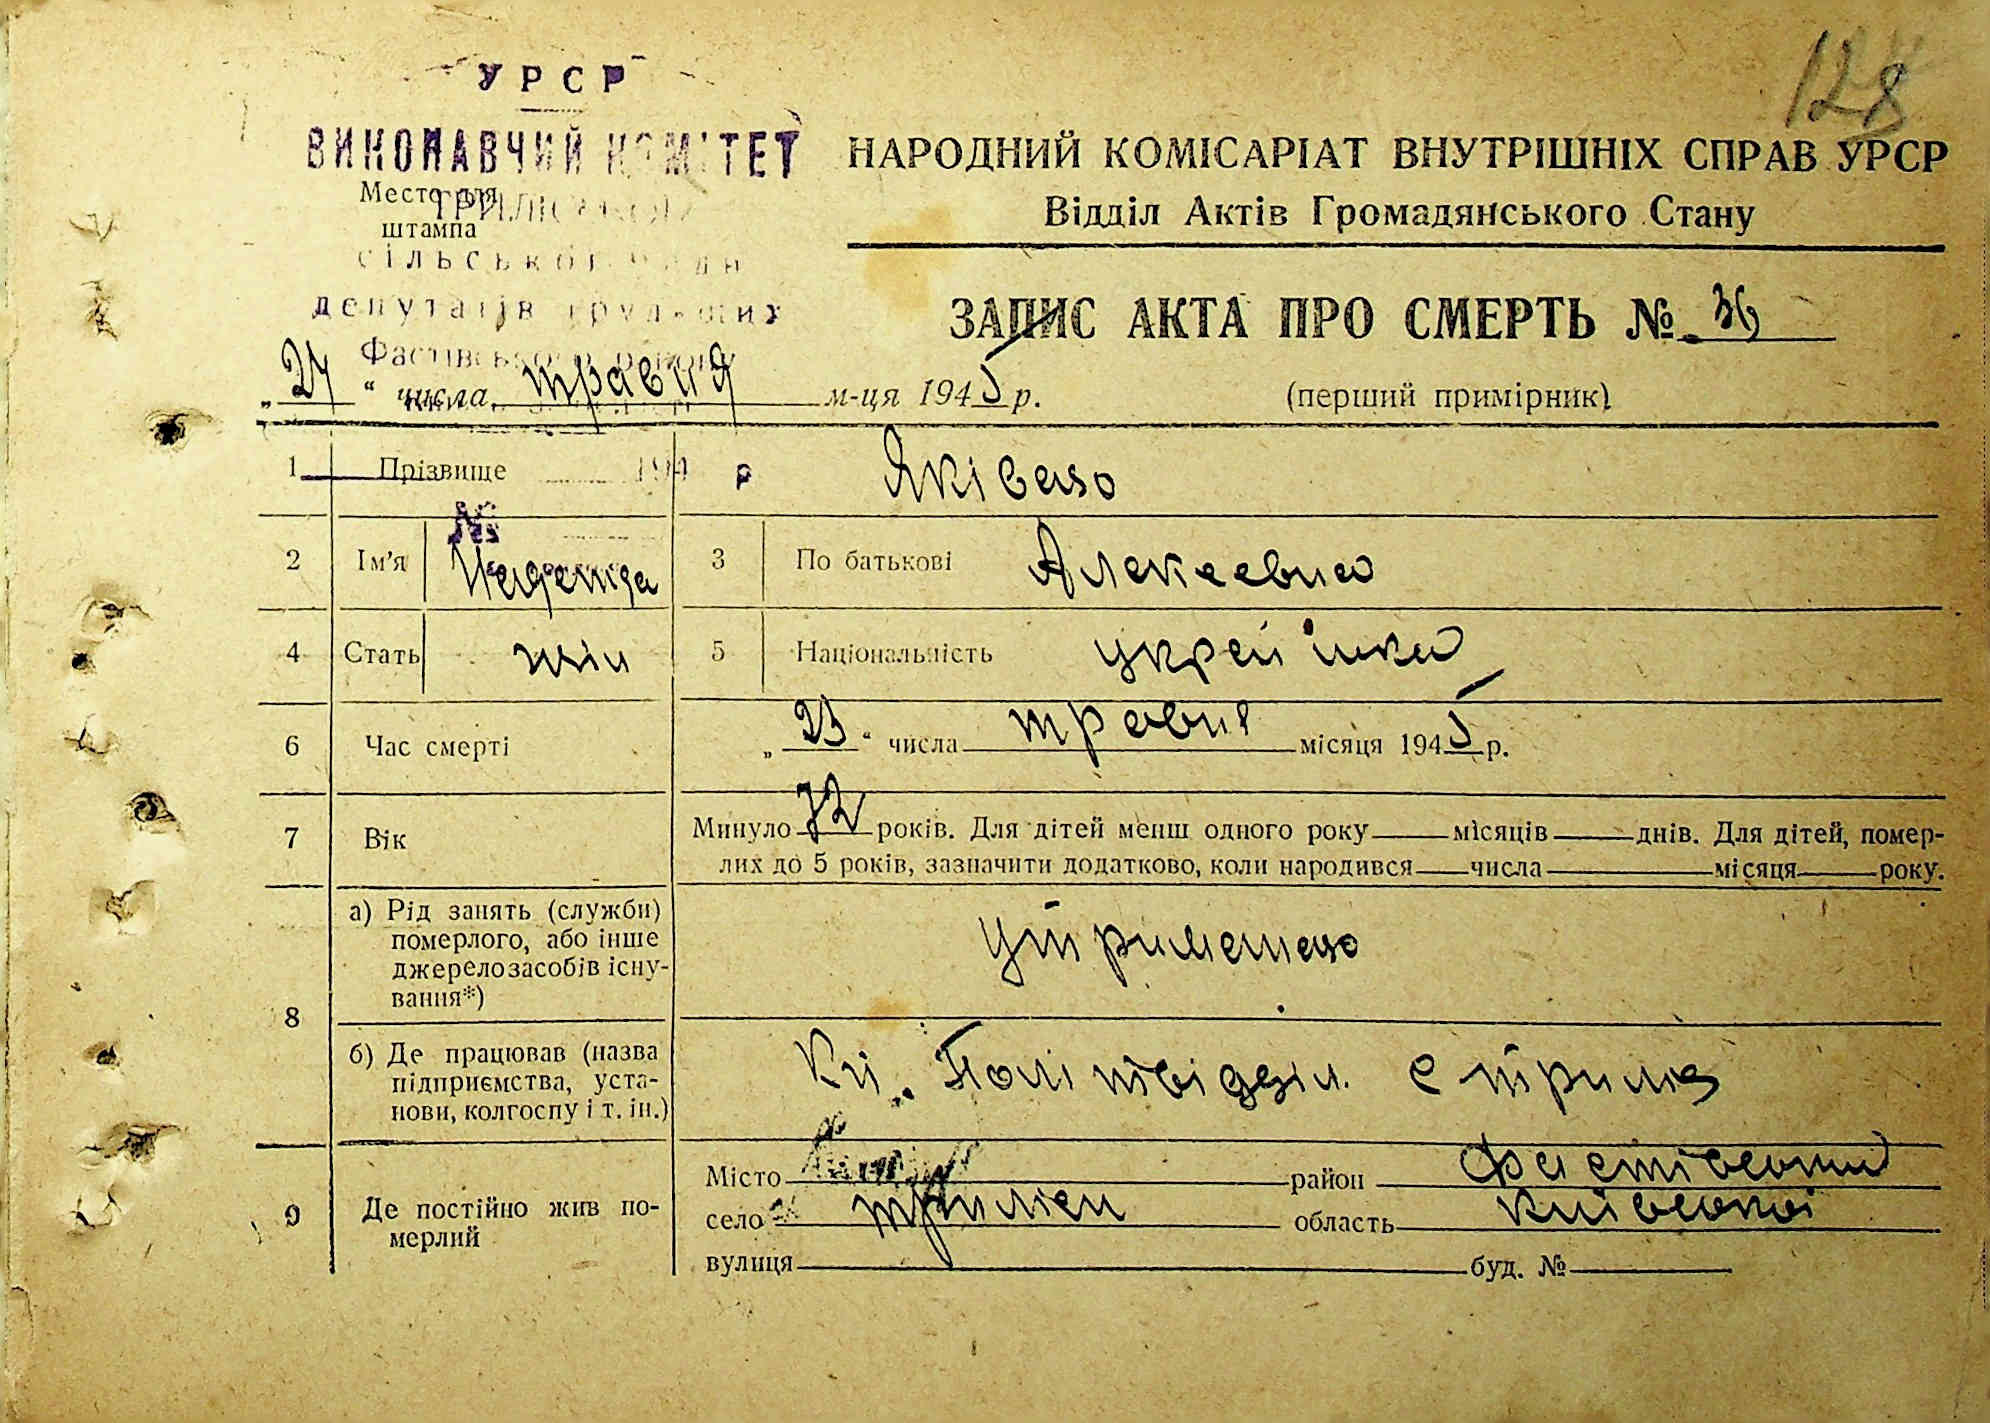 128
УРСР
ВИКОНАВЧИЙ КОМІТЕТ
Место для
штампа
ТРИЛІСЬКОЇ
сільської ради
депутатів трудящих
Фастівського району
НАРОДНИЙ КОМІСАРІАТ ВНУТРІШНІХ СПРАВ УРСР
Відділ Актів Громадянського Стану
ЗАПИС АКТА ПРО СМЕРТЬ № 36
„24“ числа травня м-ця 1945 р.
(перший примірник)
1 Прізвище 194 р Яківець
№
2 Ім'я Надежда 3 По батькові Алексеевна
4 Стать жін 5 Національність украйінка
6 Час смерті „23“ числа травня місяця 1945 р.
7 Вік Минуло 72 років. Для дітей менш одного року місяців днів. Для дітей, помер-
лих до 5 років, зазначити додатково, коли народився числа місяця року.
8 а) Рід занять (служби)
померлого, або інше
джерело засобів існу-
вання*)
б) Де працював (назва
підприємства, уста-
нови, колгоспу і т. ін.)
Політвідділ с
9 Де постійно жив по-
мерлий
Місто район Фастівський
село Триліси область Київської
вулиця буд. №